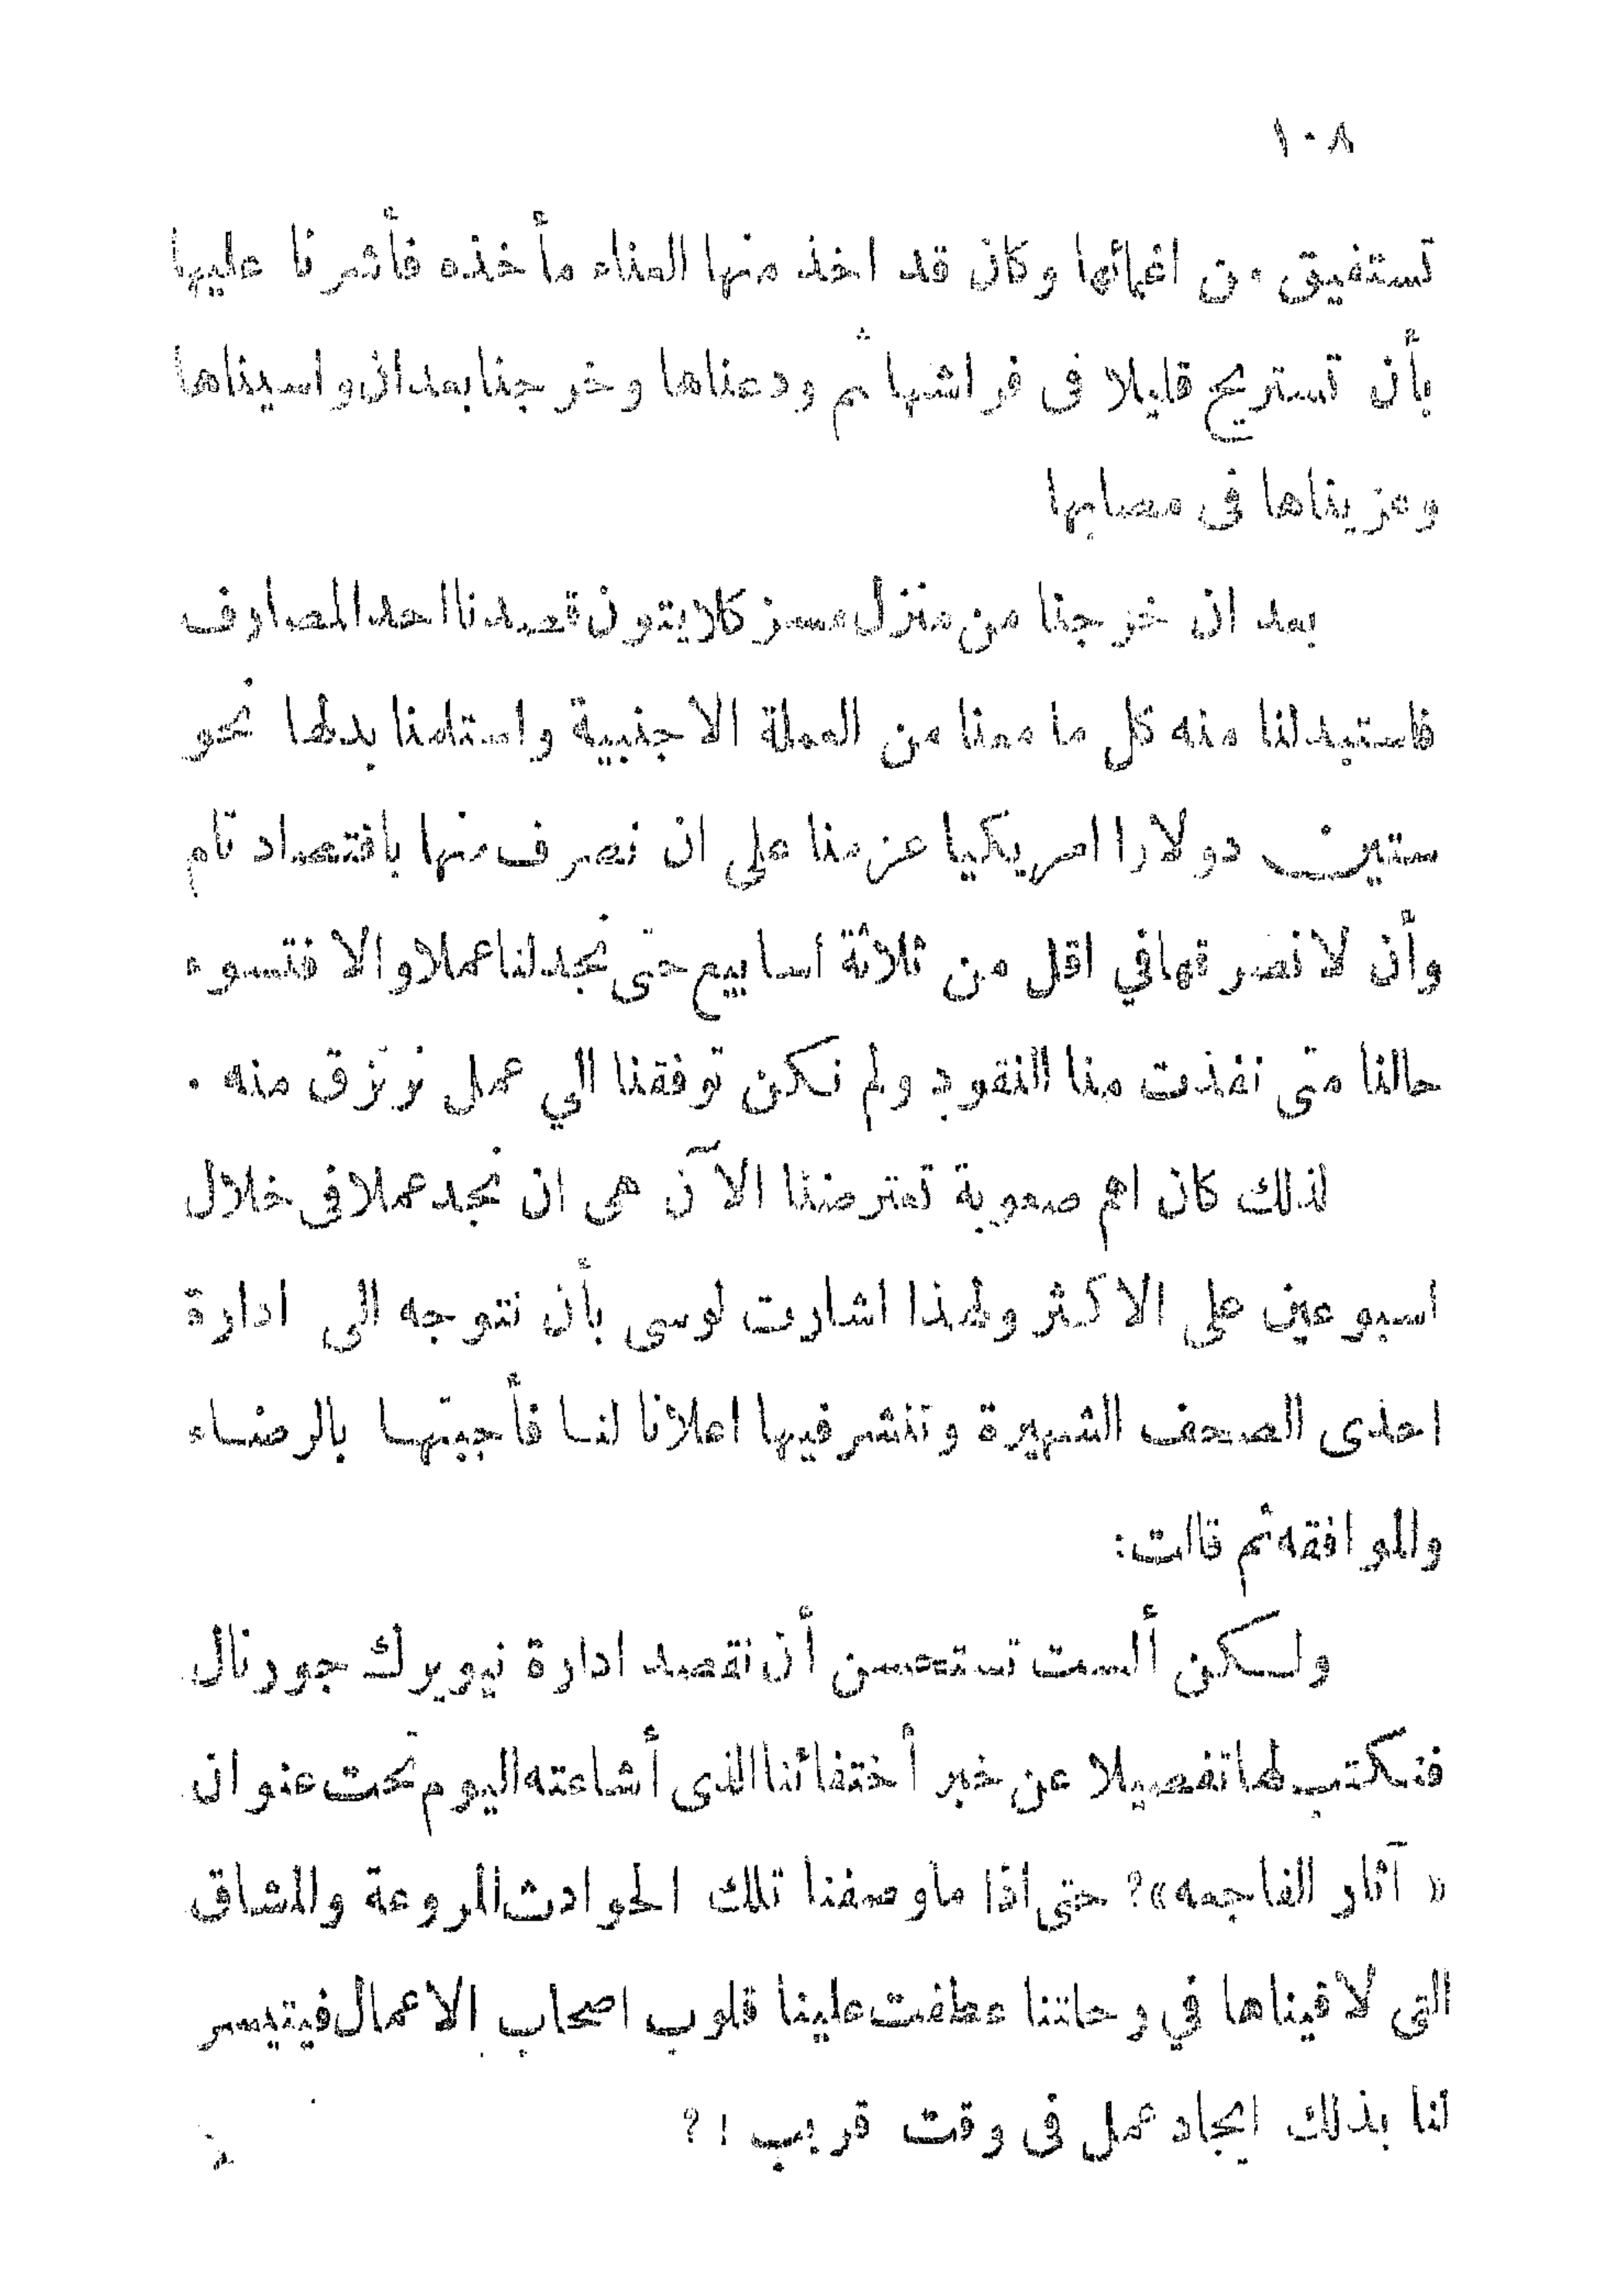 ١٠٨
تستفيق من اغمائها وكان قد اخذ منها العناء مأخذه فأشرنا عليها
بأن تستريح قليلا فى فراشها ثم ودعناها وخرجنا بعد ان واسيناها
وعزيناها فى مصابها
بعد ان خرجنا من منزل مسز كلايتون قصدنا احد المصارف
فاستبدلنا منه كل ما معنا من العملة الاجنبية واستلمنا بدلها نحو
ستين دولارا امريكيا عزمنا على ان نصرف منها باقتصاد تام
وأن لا نصرفها في اقل من ثلاثة اسابيع حتى نجد لنا عملا والا فتسوء
حالنا متى نفذت منا النقود ولم نكن توفقنا الي عمل نرتزق منه .
لذلك كان اهم صعوبة تعترضنا الآن هى ان نجد عملا فى خلال
اسبوعين على الاكثر ولهذا اشارت لوسى بأن نتوجه الى ادارة
احدى الصحف الشهيرة وننشر فيها اعلانا لنا فأجبتها بالرضاء
والموافقه ثم قالت:
ولكن ألست تستحسن أن نقصد ادارة نيويرك جورنال
فنكتب لها تفصيلا عن خبر أختفائنا الذى أشاعته اليوم تحت عنوان
« آثار الفاجعه»؟ حتى اذا ما وصفنا تلك الحوادث المروعة والمشاق
التى لاقيناها في رحلتنا عطفت علينا قلوب اصحاب الاعمال فيتيسر
لنا بذلك ايجاد عمل فى وقت قريب !؟